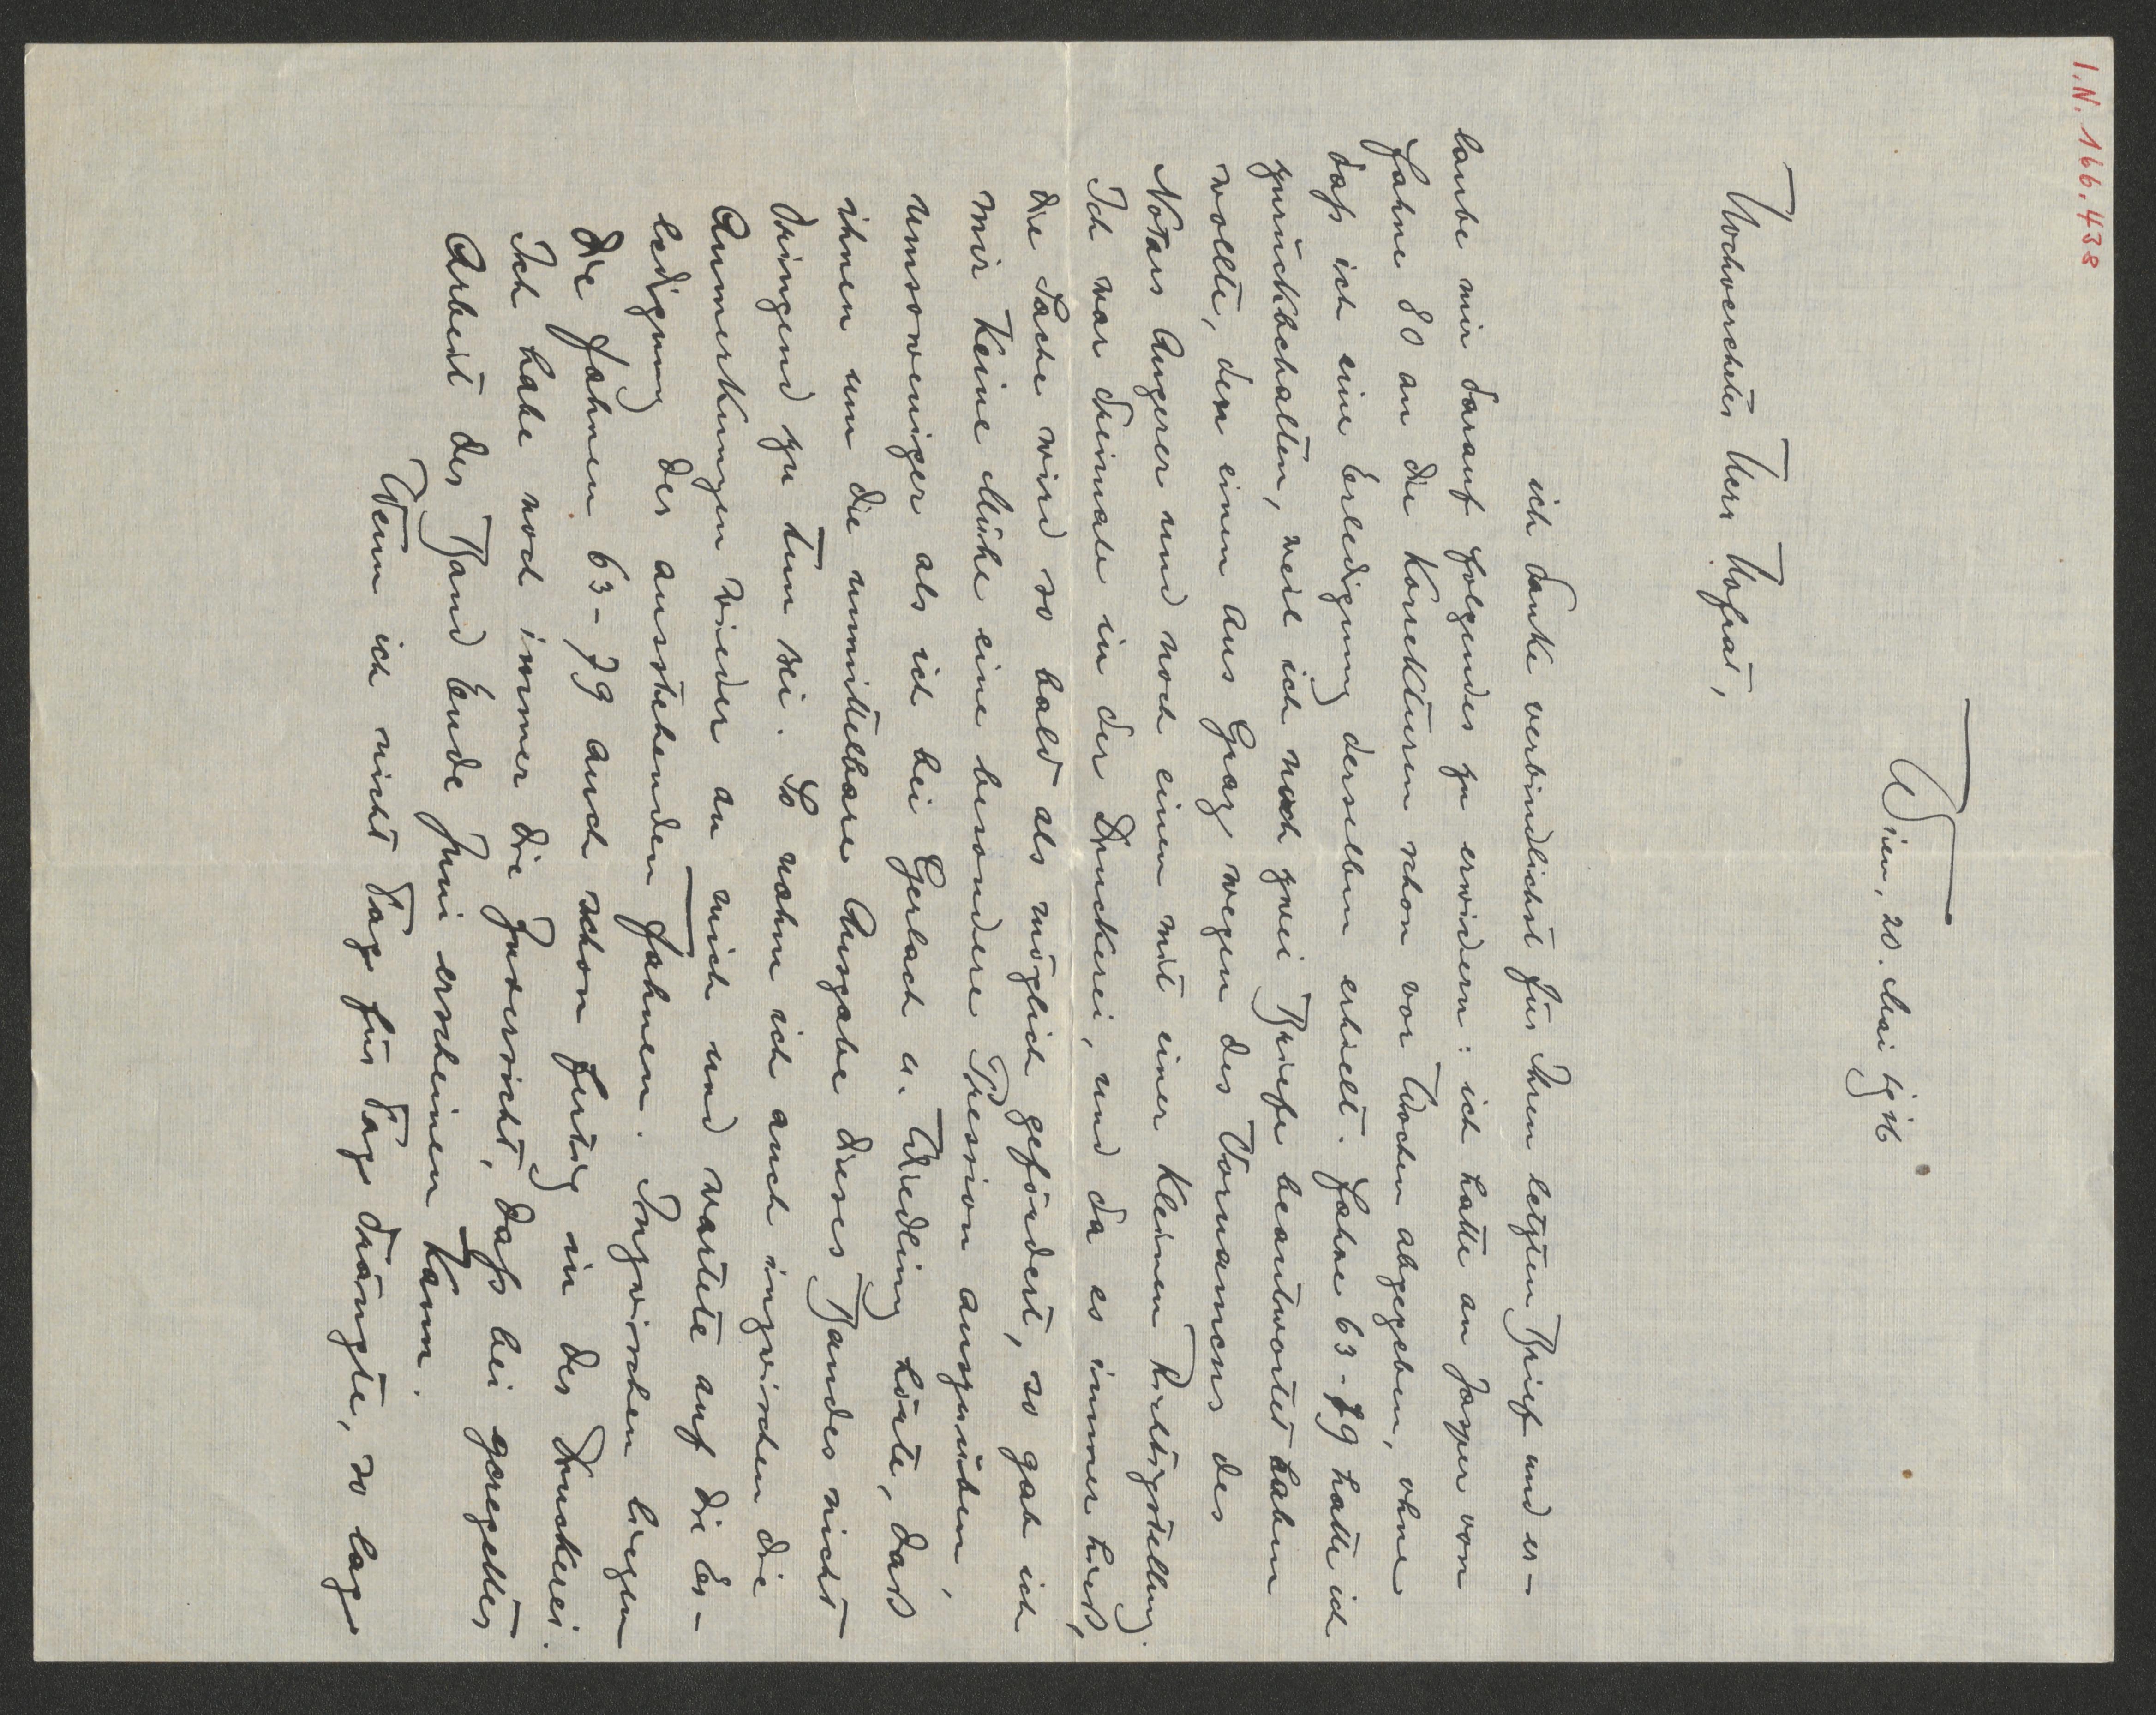 I.N. 166.438
Wien, 20. Mai 1916
Hochverehrter Herr Hofrat,
ich danke verbindlichst für Ihren letzten Brief und er-
laube mir darauf folgendes zu erwidern: ich hatte an Jasper von
Fahne 80 an die Korrekturen schon vor Wochen abgegeben, ohne
dass ich eine Erledigung derselben erhielt. Fahne 63-79 hatte ich
zurückbehalten, weil ich noch zwei Briefe beantwortet haben
wollte, den einen aus Graz wegen des Vornamens des
Notars Angerer und noch einen mit einer kleinen Richtigstellung.
Ich war dreimale in der Druckerei, und da es immer hieß,
die Sache wird so bald als möglich gefördert, so gab ich
mir keine Mühe eine besondere Pression auszuüben,
umsoweniger als ich bei Gerlach u. Wiedling hörte, daß
ihnen um die unmittelbare Ausgabe dieses Bandes nicht
dringend zu tun sei. So nahm ich auch inzwischen die
Anmerkungen wieder an mich und wartete auf die Er-
ledigung der ausstehenden Fahnen. Inzwischen liegen
die Fahnen 63-79 auch schon fertig in der Druckerei.
Ich habe noch immer die Zuversicht, dass bei geregelter
Arbeit der Band Ende Juni erscheinen kann.
Wenn ich nicht Tag für Tag drängte, so lag